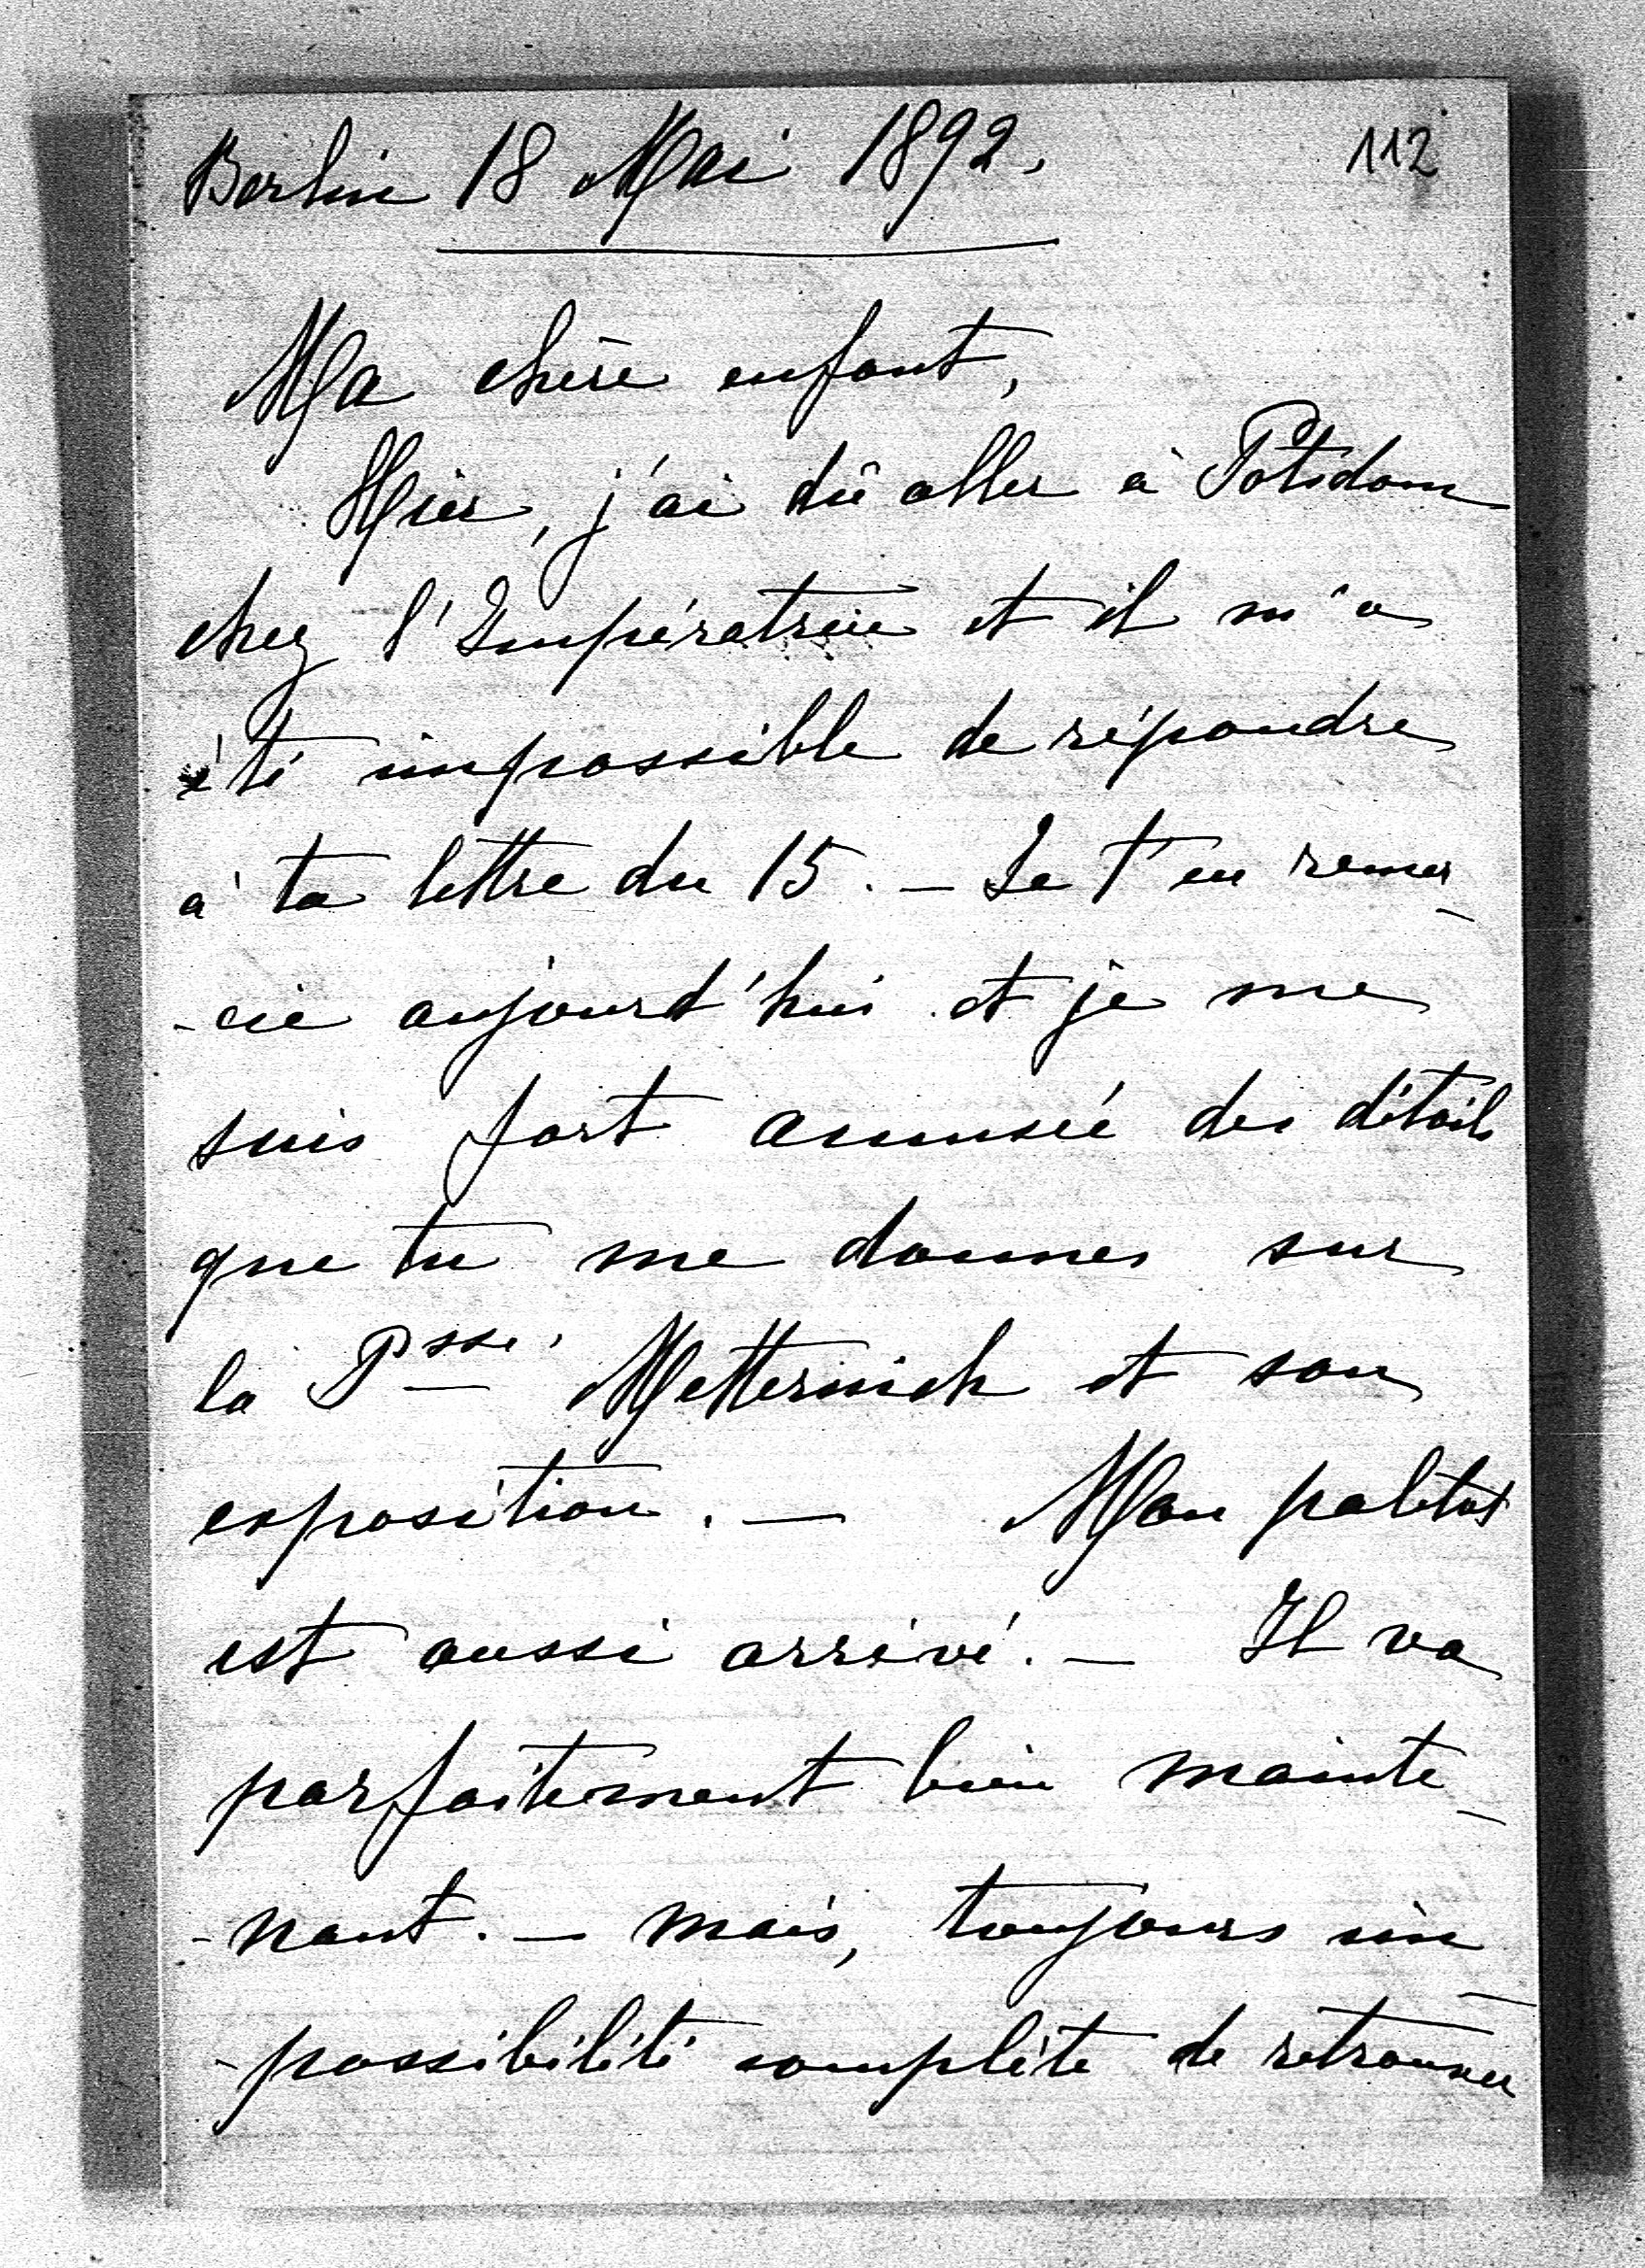 Berlin 18 Mai 1892. 112
Ma chère enfant,
Hier, j'ai dû aller à Potsdam
chez l'Impératrice et il m'a
été impossible de répondre
à ta lettre du 15. — Je t'en remer-
-cie aujourd'hui et je me
suis fort amusée des détails
que tu me donnes sur
la Psse. Metternich et son
exposition. — Mon paletot
est aussi arrivé. — Il va
parfaitement bien mainte-
-nant. — Mais, toujours im-
-possibilité complète de retrouver